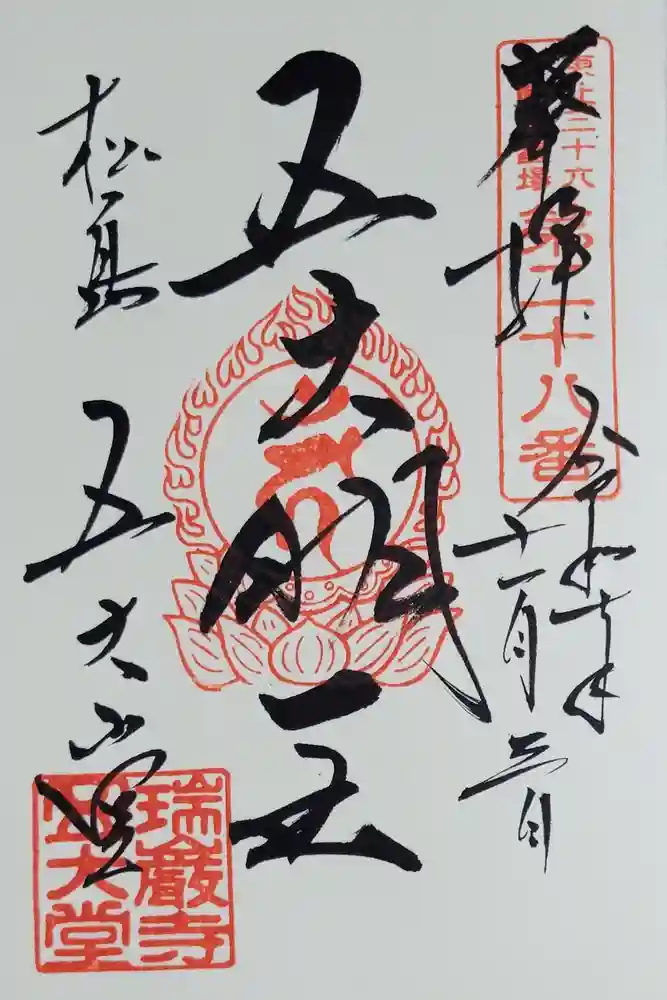 東北三十六
不動尊霊場
第二十八番
奉拝
令和七年
十一月三日
五大明王
松島
五大堂
瑞巌寺
五大堂